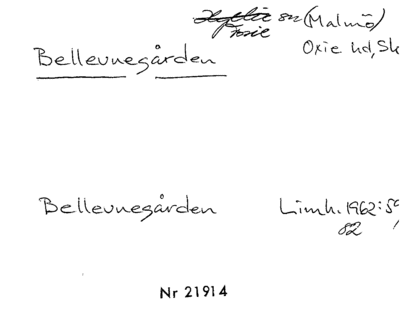 sn (Malmö)
Fosie
Oxie hd, Sk
Bellevuegården
Bellevuegården
Limh. 1962: 59,
82
Nr 21914